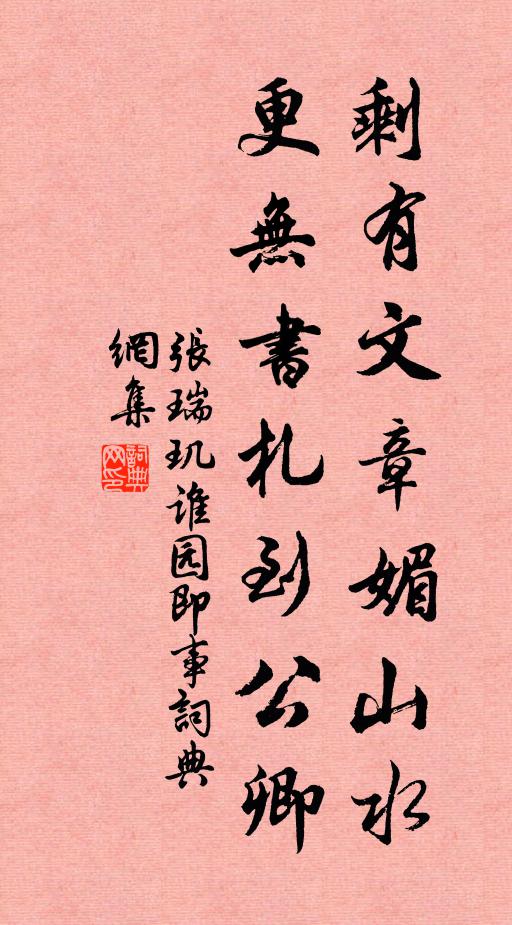 剩有文章媚山水
更無書札到公卿
張瑞玑谁园即事詞典
網集
詞典网印